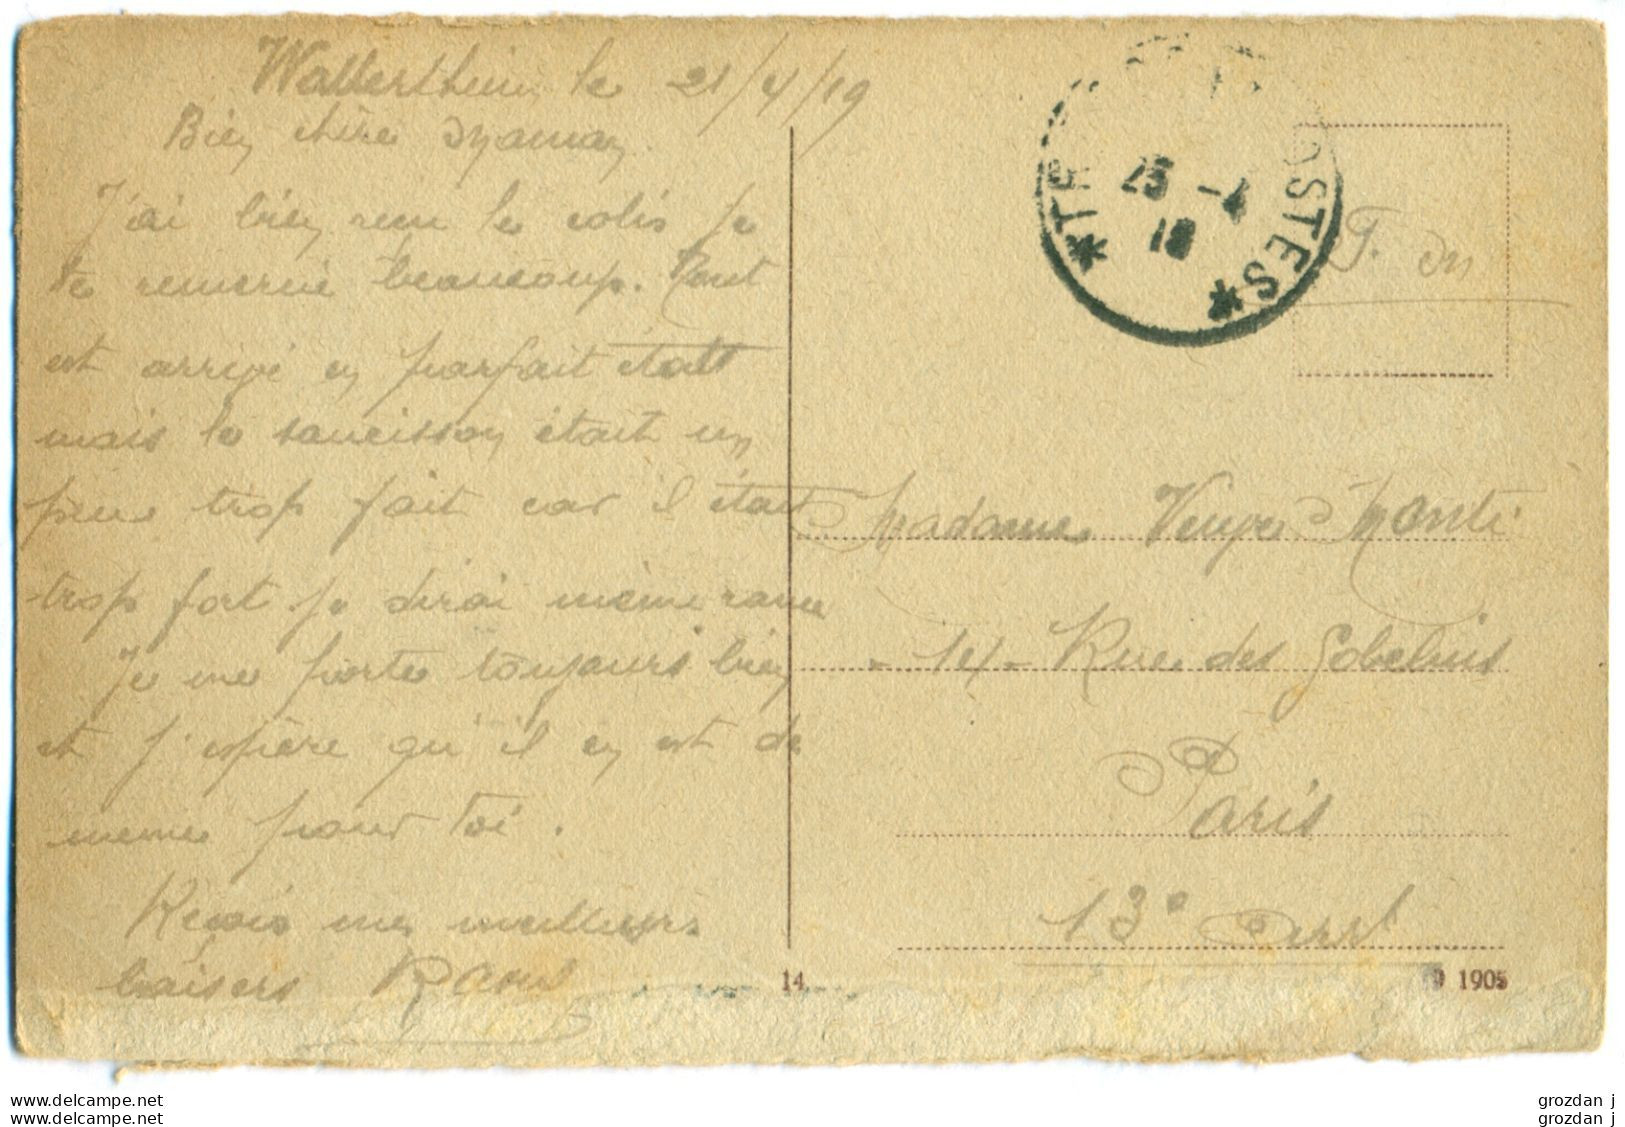 Wallertheim le 21/4/19
Bien chère Maman
J'ai bien reçu le colis je
te remercie beaucoup. Tout
est arrivé en parfait état
mais le saucisson était un
peu trop fait car il était
trop fort je dirai même rance
Je me porte toujours bien
et j'espère qu'il en est de
meme pour toi.
Reçois mes meilleurs
baisers Raoul
*TR OSTES*
25 -4
19
F. M
Madame Monti
14 - Rue des Gobelins
Paris
13e Arrt
14
1905
delcampe.net
grozdan j
delcampe.net
grozdan j